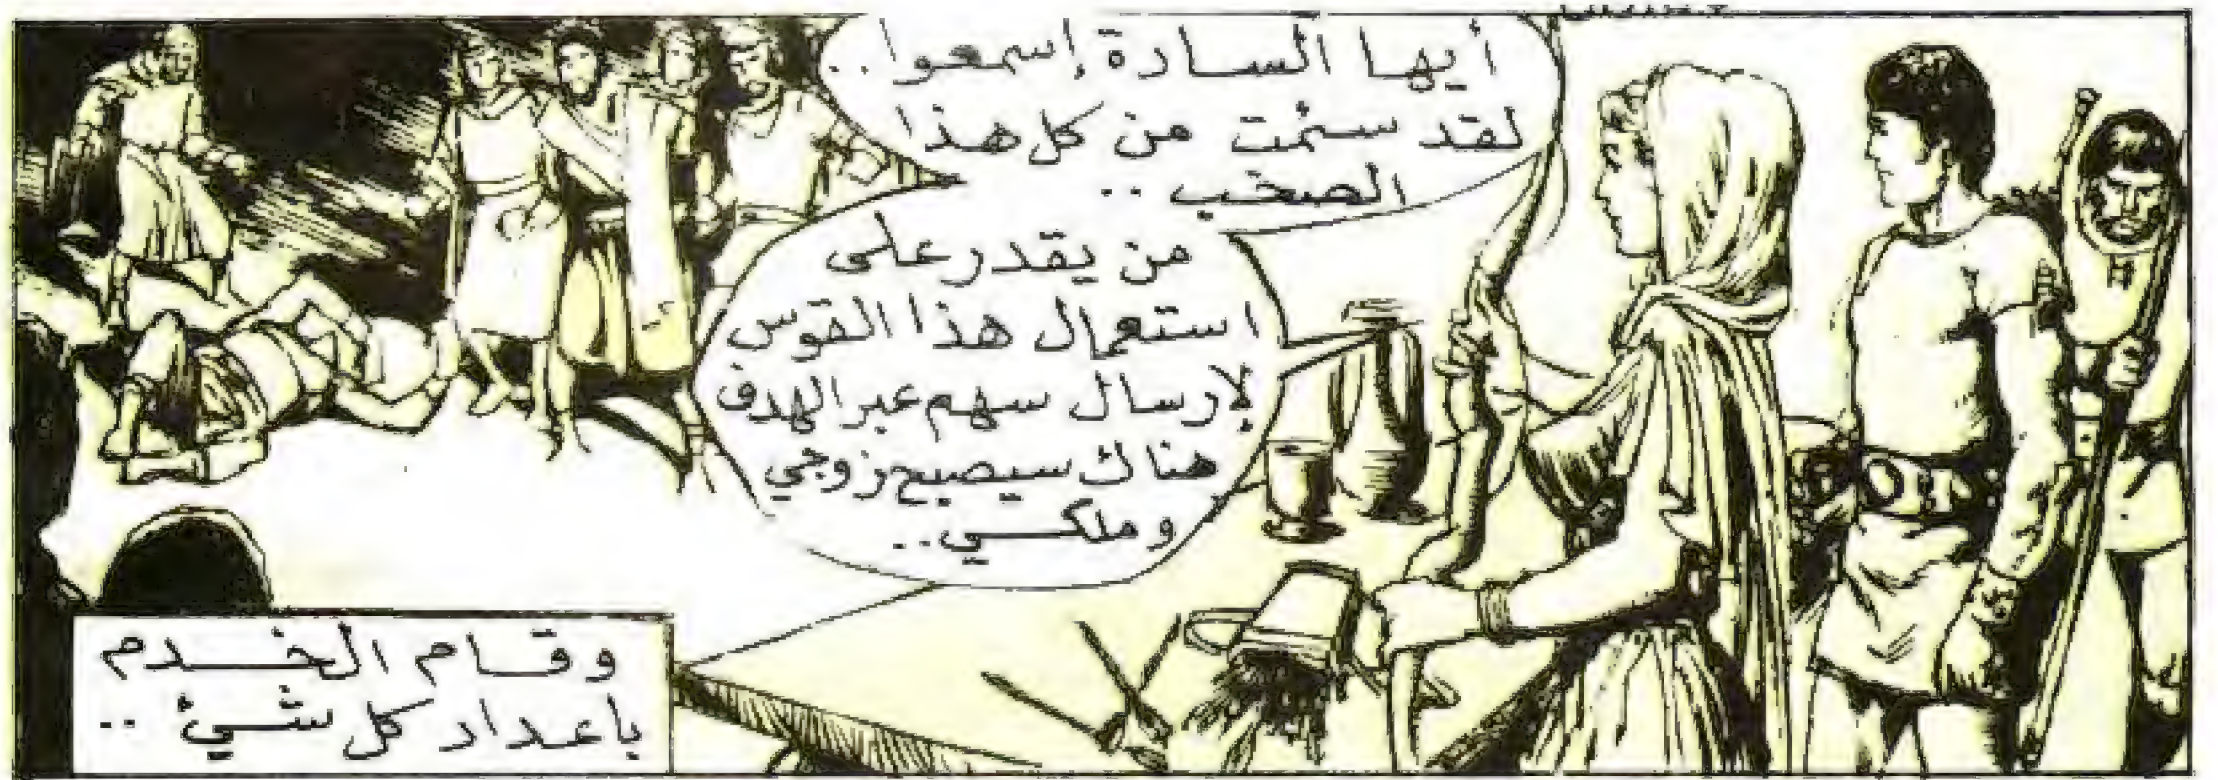 أيها السادة إسمعوا..
لقد سئمت من كل هذا
الصخب..
من يقدر على
استعمال هذا القوس
لإرسال سهم عبر الهدف
هناك سيصبح زوجي
وملكي..
وقام الخدم
باعداد كل شيئ..